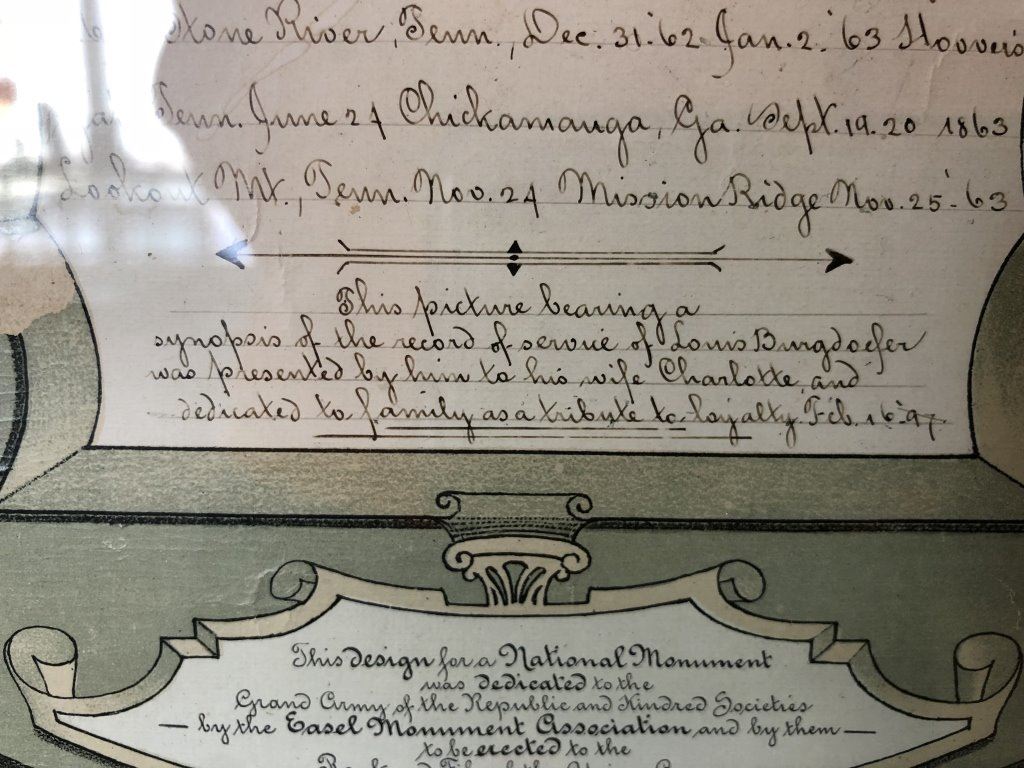 Stone River, Tenn., Dec. 31.'62. Jan. 2. '63
Tenn. June 24 Chickamauga, Ga. Sept. 19. 20 1863
Lookout Mt., Tenn. Nov. 24 Mission Ridge Nov. 25-'63
This picture bearing a
synopsis of the record of service of Louis Burgdoefer
was presented by him to his wife Charlotte, and
dedicated to family as a tribute to loyalty. Feb. 16-97
This design for a National Monument
was dedicated to the
Grand Army of the Republic and Kindred Societies
— by the Easel Monument Association and by them —
to be erected to the